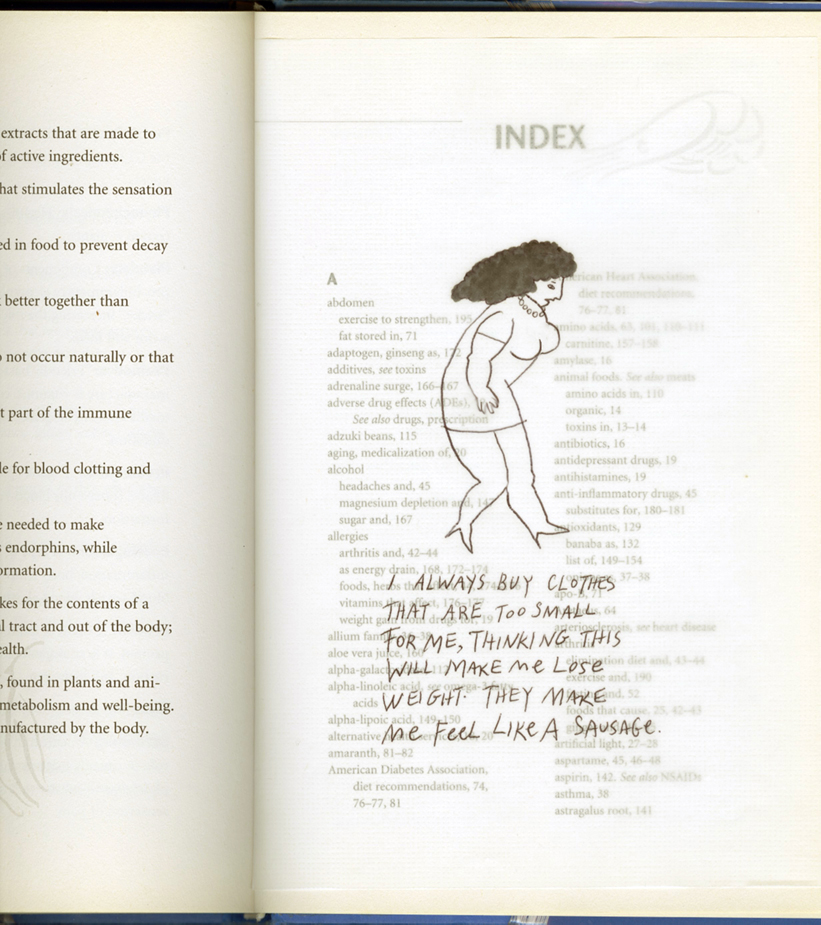 extracts that are made to
of active ingredients.
hat stimulates the sensation
ed in food to prevent decay
better together than
not occur naturally or that
t part of the immune
le for blood clotting and
e needed to make
endorphins, while
ormation.
kes for the contents of a
l tract and out of the body;
ealth.
, found in plants and ani-
metabolism and well-being.
nufactured by the body.
INDEX
A
abdomen
exercise to strengthen, 195
fat stored in, 71
adaptogen, ginseng as, 172
additives, see toxins
adrenaline surge, 166–167
adverse drug effects (ADEs),
See also drugs, prescription
adzuki beans, 115
aging, medicalization of,
alcohol
headaches and, 45
magnesium depletion and,
sugar and, 167
allergies
arthritis and, 42–44
as energy drain, 168, 172–174
foods, herbs
vitamins that affect, 176–177
weight gain from drugs for, 19
allium family,
aloe vera juice, 160
alpha-linoleic acid, see omega-3 fatty
acids
alpha-lipoic acid, 149–150
alternative
amaranth, 81–82
American Diabetes Association,
diet recommendations, 74,
76–77, 81
American Heart Association,
diet recommendations,
76–77, 81
amino acids, 63, 101, 110–115
carnitine, 157–158
amylase, 16
animal foods. See also meats
amino acids in, 110
organic, 14
toxins in, 13–14
antibiotics, 16
antidepressant drugs, 19
antihistamines, 19
anti-inflammatory drugs, 45
substitutes for, 180–181
antioxidants, 129
banaba as, 132
list of, 149–154
37–38
apo-B, 71
64
arteriosclerosis, see heart disease
arthritis
elimination diet and, 43–44
exercise and, 190
and, 52
foods that cause, 25, 42–43
artificial light, 27–28
aspartame, 45, 46–48
aspirin, 142. See also NSAIDs
asthma, 38
astragalus root, 141
I ALWAYS BUY CLOTHES
THAT ARE TOO SMALL
FOR ME, THINKING THIS
WILL MAKE me LOSE
WEIGHT. THEY MAKE
me FEEL LIKE A SAUSAGE.